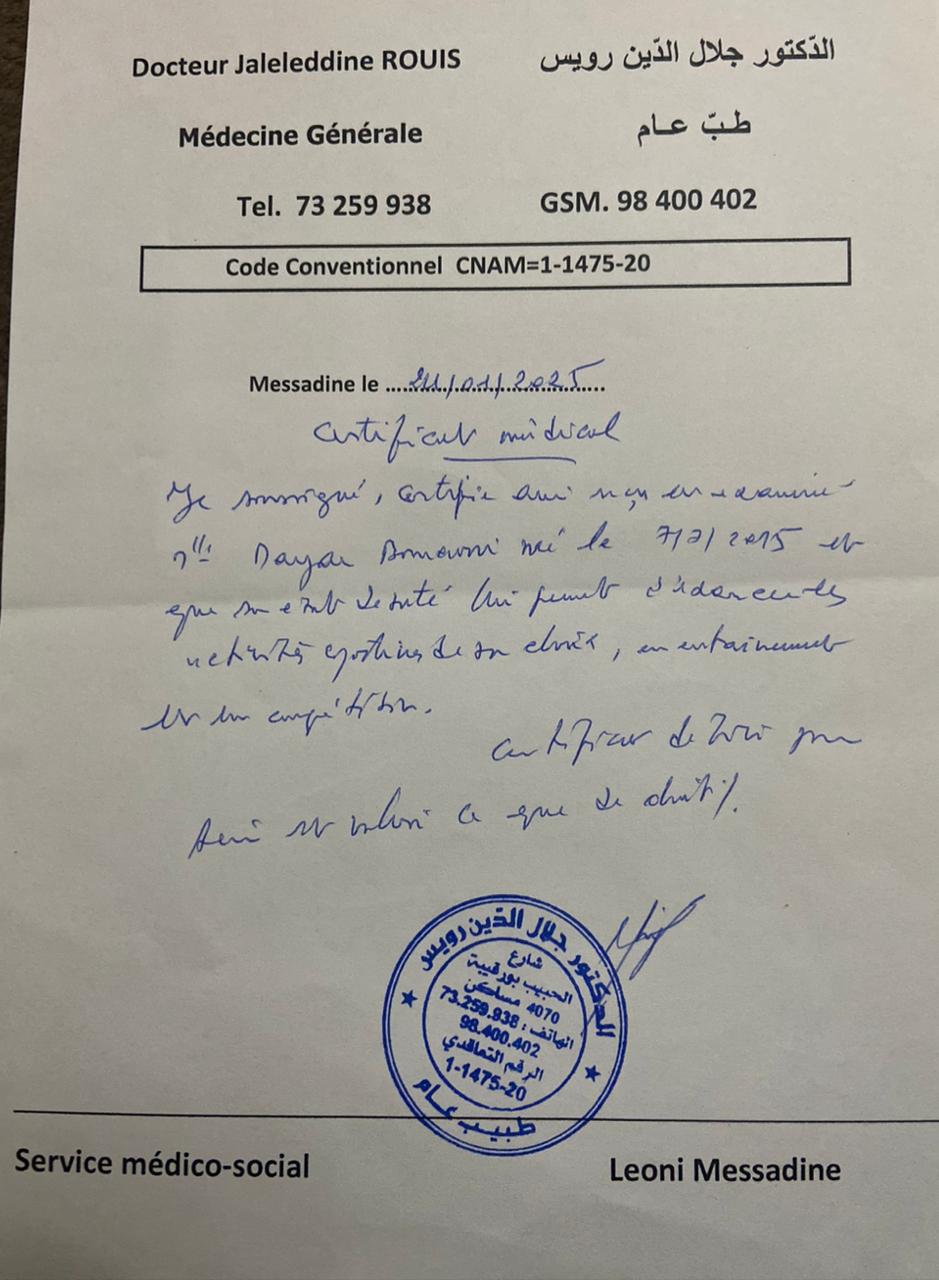 Docteur Jaleleddine ROUIS
الدّكتور جلال الدّين رويس
Médecine Générale
طبّ عـام
Tel. 73 259 938
GSM. 98 400 402
Code Conventionnel CNAM=1-1475-20
Messadine le .../01/2025
Certificat médical
Je soussigné, certifie avoir examiné
né le 7/7/2015 et
que son état de santé lui permet d'
activités sportives de son choix, en entrainement
et en compétition.
Certificat de
valoir ce que de droit/.
الدكتور جلال الدّين رويس
شارع
الحبيب بورقيبة
4070 مساكن
الهاتف : 73.259.938
98.400.402
الرقم التعاقدي
1-1475-20
طبيب عـام
Service médico-social
Leoni Messadine